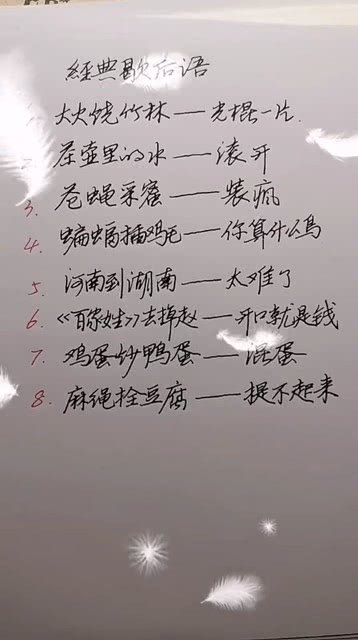 經典歇后语
1. 大火烧竹林——光棍一片.
2. 茶壶里的水——滚开
3. 苍蝇采蜜——装疯
4. 蝙蝠插鸡毛——你算什么鸟
5. 河南到湖南——太难了
6. 《百家姓》去掉赵——开口就是钱
7. 鸡蛋炒鸭蛋——混蛋
8. 麻绳拴豆腐——提不起来